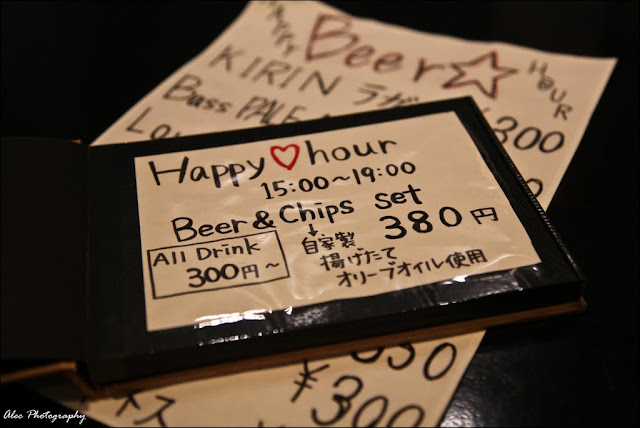 HAPPY Beer☆ HOUR
KIRIN ラガー
Bass PALE
¥300
Happy♡hour
15:00～19:00
Beer&Chips set
380円
↓
自家製
揚げたて
オリーブオイル使用
All Drink
300円～
¥300
Alec Photography